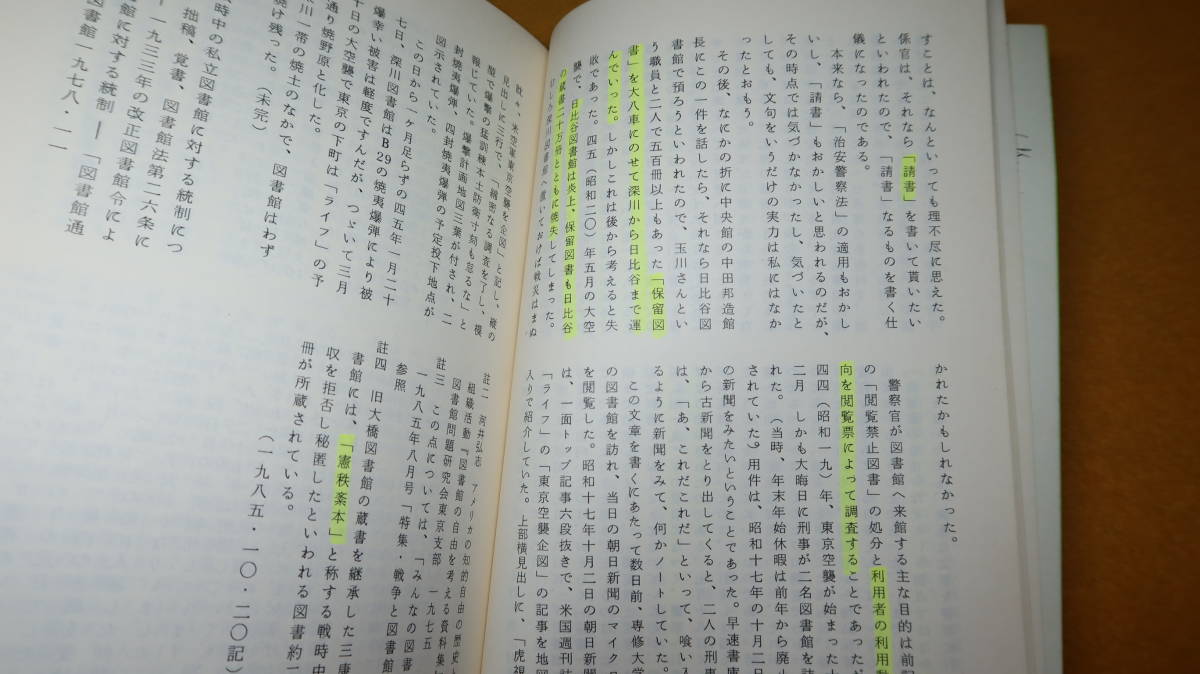 すことは、なんといっても理不尽に思えた。
係官は、それなら「請書」を書いて貰いたい
といわれたので、「請書」なるものを書く仕
儀になったのである。
本来なら、「治安警察法」の適用もおかし
いし、「請書」もおかしいと思われるのだが、
その時点では気づかなかったし、気づいたと
しても、文句をいうだけの実力は私にはなか
ったとおもう。
その後、なにかの折に中央館の中田邦造館
長にこの一件を話したら、それなら日比谷図
書館で預ろうといわれたので、玉川さんとい
う職員と二人で五百冊以上もあった「保留図
書」を大八車にのせて深川から日比谷まで運
んでいった。しかしこれは後から考えると失
敗であった。四五(昭和二〇)年五月の大空
襲で、日比谷図書館は炎上、保留図書も日比谷
の蔵書二十万冊とともに焼失してしまった。
むしろ深川図書館へ置いておけば戦災はまぬ
かれたかもしれなかった。
警察官が図書館へ来館する主な目的は前記
の「閲覧禁止図書」の処分と利用者の利用動
向を閲覧票によって調査することであったが
四四(昭和一九)年、東京空襲が始まった十
二月 しかも大晦日に刑事が二名図書館を訪
れた。(当時、年末年始休暇は前年から廃止
されていた)用件は、昭和十七年の十月二日
の新聞をみたいということであった。早速書庫
から古新聞をとり出してくると、二人の刑事
は、「あ、これだこれだ」といって、喰い入
るように新聞をみて、何かノートしていた。
この文章を書くにあたって数日前、専修大学
の図書館を訪れ、当日の朝日新聞のマイクロ
を閲覧した。昭和十七年十月二日の朝日新聞
は、一面トップ記事六段抜きで、米国週刊誌
「ライフ」の「東京空襲企図」の記事を地図
入りで紹介していた。上部横見出しに、「虎視
眈々、米空軍東京空襲を企図」と記し、縦の
見出しに三行で、「綿密なる調査を了し、模
型で爆撃の猛訓練本土防衛寸刻も怠るな」と
報じていた。爆撃計画地図三葉が付され、二
封焼夷爆弾、四封焼夷爆弾の予定投下地点が
図示されていた。
この日から一ケ月足らずの四五年一月二十
七日、深川図書館はB29の焼夷爆弾により被
爆幸い被害は軽度ですんだが、つづいて三月
十日の大空襲で東京の下町は「ライフ」の予
通り焼野原と化した。
川一帯の焼土のなかで、図書館はわず
焼け残った。(未完)
時中の私立図書館に対する統制につ
拙稿、覚書、図書館法第二六条に
一九三三年の改正図書館令によ
館に対する統制――「図書館
図書館一九七八・一一
註二 河井弘志 アメリカの知的自由の歴史と
組織活動『図書館の自由を考える資料集』
図書館問題研究会東京支部 一九七五
註三 この点については、「みんなの図書
一九八五年八月号「特集・戦争と図書館
参照
註四 旧大橋図書館の蔵書を継承した三康
書館には、「憲秩紊本」と称する戦時中
収を拒否し秘匿したといわれる図書約二
冊が所蔵されている。
(一九八五・一〇・二〇記)